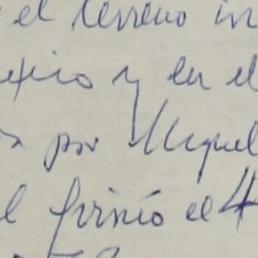 el terreno in
exico y en el
por Miguel
firmó el 4